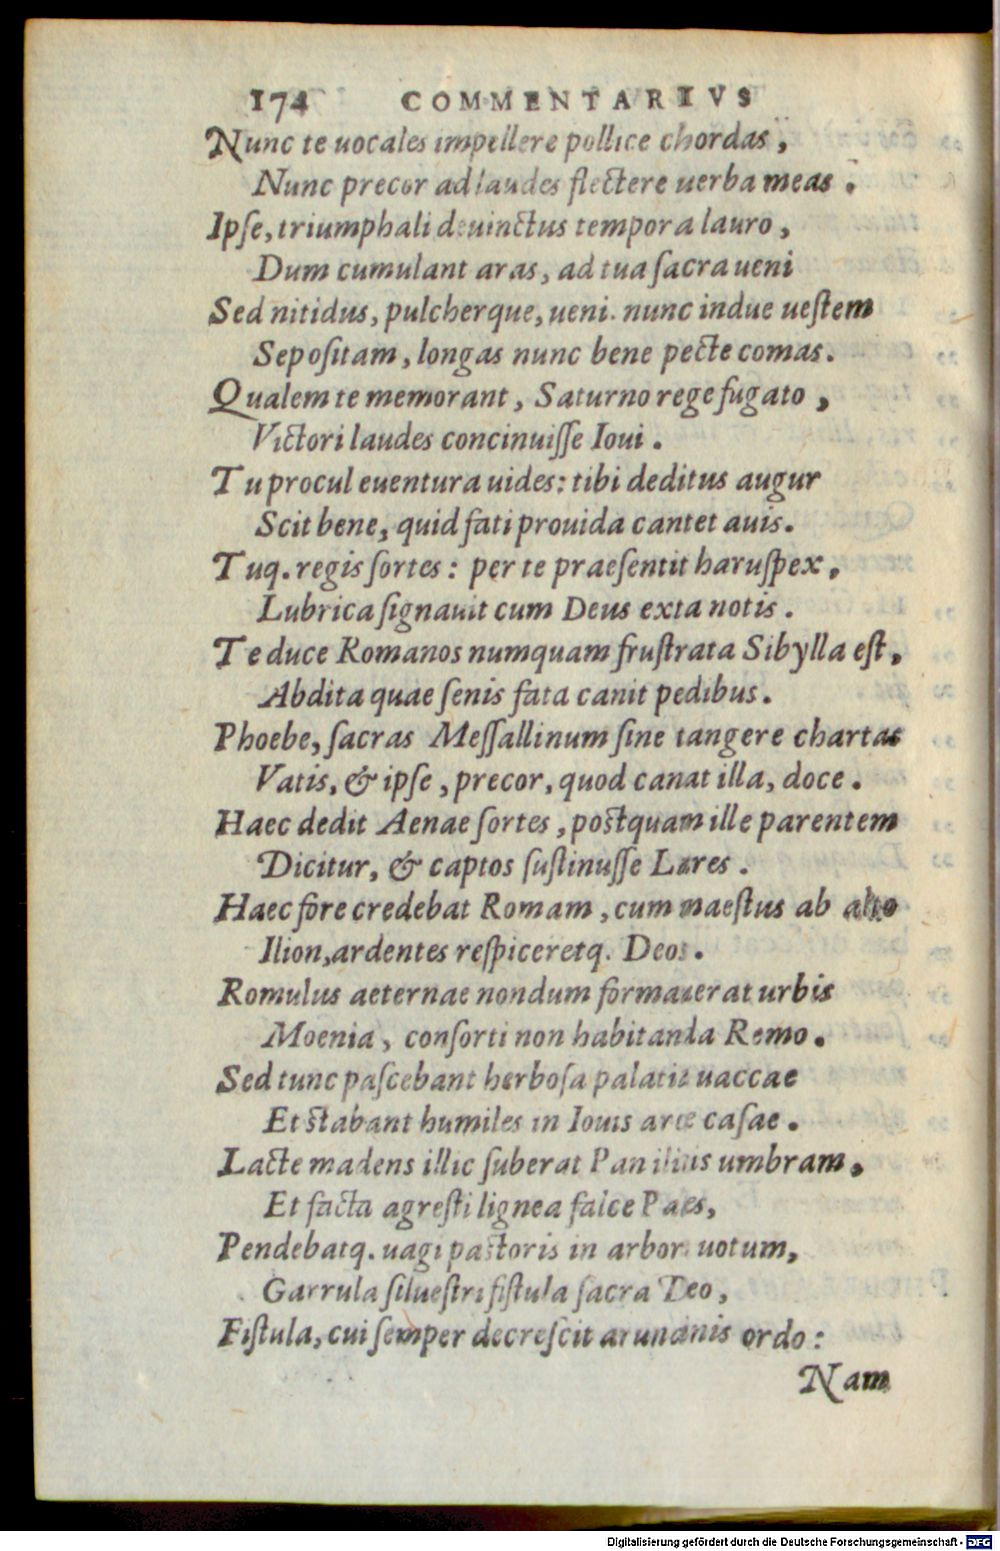 174 COMMENTARIVS
Nunc te uocales impellere pollice chordas,
Nunc precor ad laudes flectere uerba meas.
Ipse, triumphali deuinctus tempora lauro,
Dum cumulant aras, ad tua sacra ueni
Sed nitidus, pulcherque, ueni. nunc indue uestem
Sepositam, longas nunc bene pecte comas.
Qualem te memorant, Saturno rege fugato,
Victori laudes concinuisse Ioui.
Tu procul euentura uides: tibi deditus augur
Scit bene, quid fati prouida cantet auis.
Tuq. regis sortes: per te praesentit haruspex,
Lubrica signauit cum Deus exta notis.
Te duce Romanos numquam frustrata Sibylla est,
Abdita quae senis fata canit pedibus.
Phoebe, sacras Messallinum sine tangere chartas
Vatis, & ipse, precor, quod canat illa, doce.
Haec dedit Aenae sortes, postquam ille parentem
Dicitur, & captos sustinusse Lares.
Haec fore credebat Romam, cum maestus ab alto
Ilion, ardentes respiceretq. Deos.
Romulus aeternae nondum formauerat urbis
Moenia, consorti non habitanda Remo.
Sed tunc pascebant herbosa palatia uaccae
Et stabant humiles in Iouis arce casae.
Lacte madens illic suberat Pan ilicis umbram,
Et facta agresti lignea falce Pales,
Pendebatq. uagi pastoris in arbore uotum,
Garrula siluestri fistula sacra Deo,
Fistula, cui semper decrescit arundinis ordo:
Nam
Digitalisierung gefördert durch die Deutsche Forschungsgemeinschaft - DFG